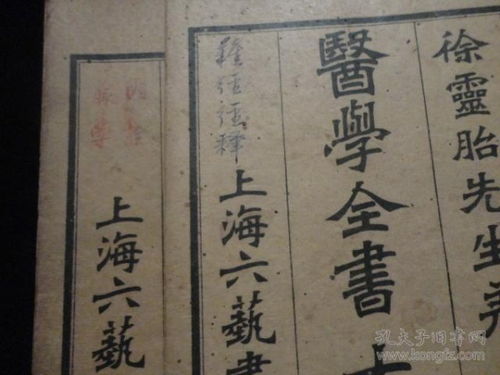 徐靈胎先生
醫學全書
難經經釋
上海六藝書
上海六藝
孔夫子旧书网
www.kongfz.com